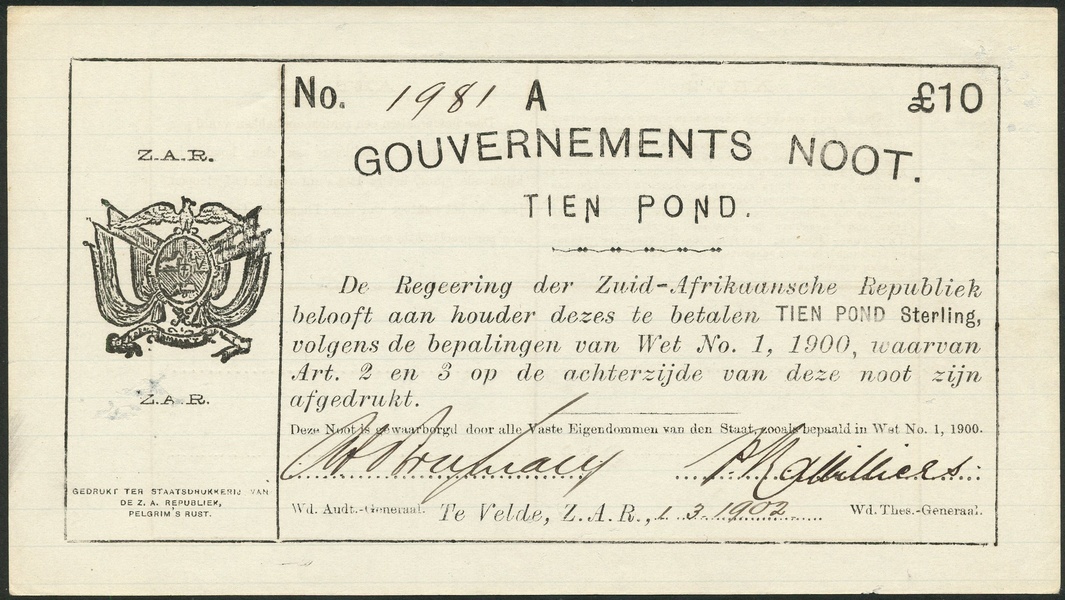 Z.A.R.
Z.A.R.
GEDRUKT TER STAATSDRUKKERIJ VAN
DE Z. A. REPUBLIEK,
PELGRIM'S RUST.
No. 1981 A £10
GOUVERNEMENTS NOOT.
TIEN POND.
De Regeering der Zuid-Afrikaansche Republiek
belooft aan houder dezes te betalen TIEN POND Sterling,
volgens de bepalingen van Wet No. 1, 1900, waarvan
Art. 2 en 3 op de achterzijde van deze noot zijn
afgedrukt.
Deze Noot is gewaarborgd door alle Vaste Eigendommen van den Staat, zooals bepaald in Wet No. 1, 1900.
Wd. Audt.-Generaal. Te Velde, Z.A.R., 1.3.1902 Wd. Thes.-Generaal.